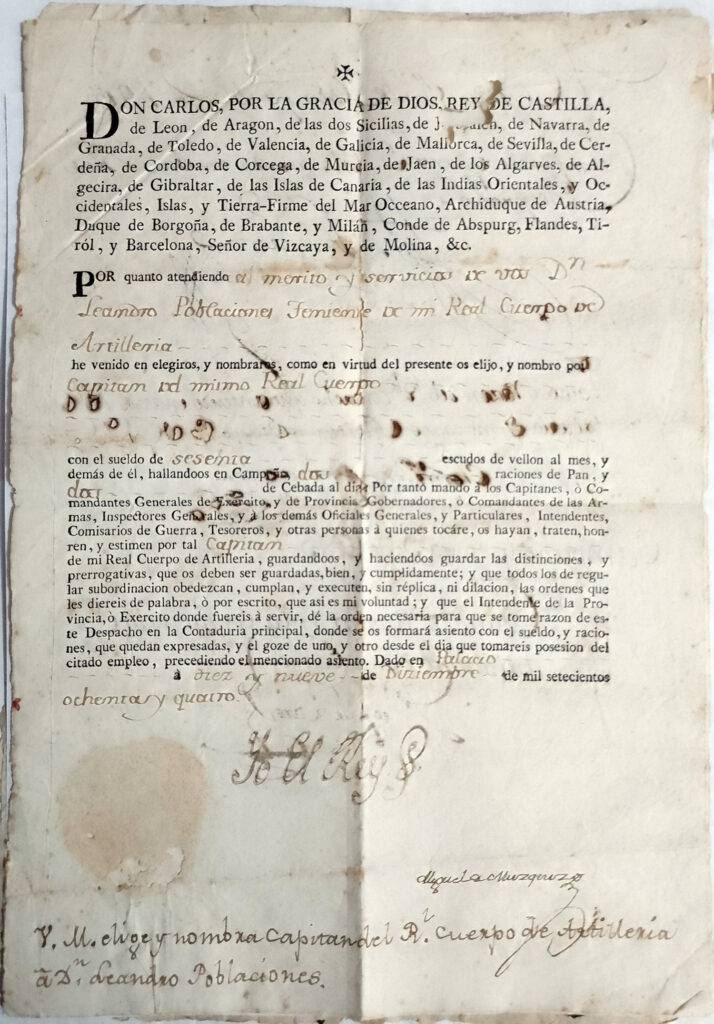 DON CARLOS, POR LA GRACIA DE DIOS, REY DE CASTILLA,
de Leon, de Aragon, de las dos Sicilias, de de Navarra, de
Granada, de Toledo, de Valencia, de Galicia, de Mallorca, de Sevilla, de Cer-
deña, de Cordoba, de Corcega, de Murcia, de Jaen, de los Algarves, de Al-
gecira, de Gibraltar, de las Islas de Canaria, de las Indias Orientales, y Oc-
cidentales, Islas, y Tierra-Firme del Mar Occeano, Archiduque de Austria,
Duque de Borgoña, de Brabante, y Milán, Conde de Abspurg, Flandes, Ti-
ról, y Barcelona, Señor de Vizcaya, y de Molina, &c.
POR quanto atendiendo al merito y servicios de vos Dn
Leandro Poblaciones Teniente de mi Real Cuerpo de
Artilleria
he venido en elegiros, y nombraros, como en virtud del presente os elijo, y nombro por
Capitan del mismo Real Cuerpo
con el sueldo de sesenta escudos de vellon al mes, y
demás de él, hallandoos en Campaña, dos raciones de Pan, y
dos de Cebada al dia: Por tanto mando à los Capitanes, ò Co-
mandantes Generales de Exército, y de Provincia, Gobernadores, ò Comandantes de las Ar-
mas, Inspectores Generales, y à los demás Oficiales Generales, y Particulares, Intendentes,
Comisarios de Guerra, Tesoreros, y otras personas à quienes tocáre, os hayan, traten, hon-
ren, y estimen por tal Capitan
de mi Real Cuerpo de Artilleria, guardandoos, y haciendoos guardar las distinciones, y
prerrogativas, que os deben ser guardadas, bien, y cumplidamente; y que todos los de regu-
lar subordinacion obedezcan, cumplan, y executen, sin réplica, ni dilacion, las ordenes que
les diereis de palabra, ò por escrito, que asi es mi voluntad; y que el Intendente de la Pro-
vincia, ò Exercito donde fuereis à servir, dé la orden necesaria para que se tome razon de es-
te Despacho en la Contaduria principal, donde se os formará asiento con el sueldo, y racio-
nes, que quedan expresadas, y el goze de uno, y otro desde el dia que tomareis posesion del
citado empleo, precediendo el mencionado asiento. Dado en Palacio
à diez y nueve de Diziembre de mil setecientos
ochenta y quatro.
Yo El Rey
Miguel de Muzquiz
V. M. elige y nombra Capitan del Rl. Cuerpo de Artilleria
â Dn. Leandro Poblaciones.